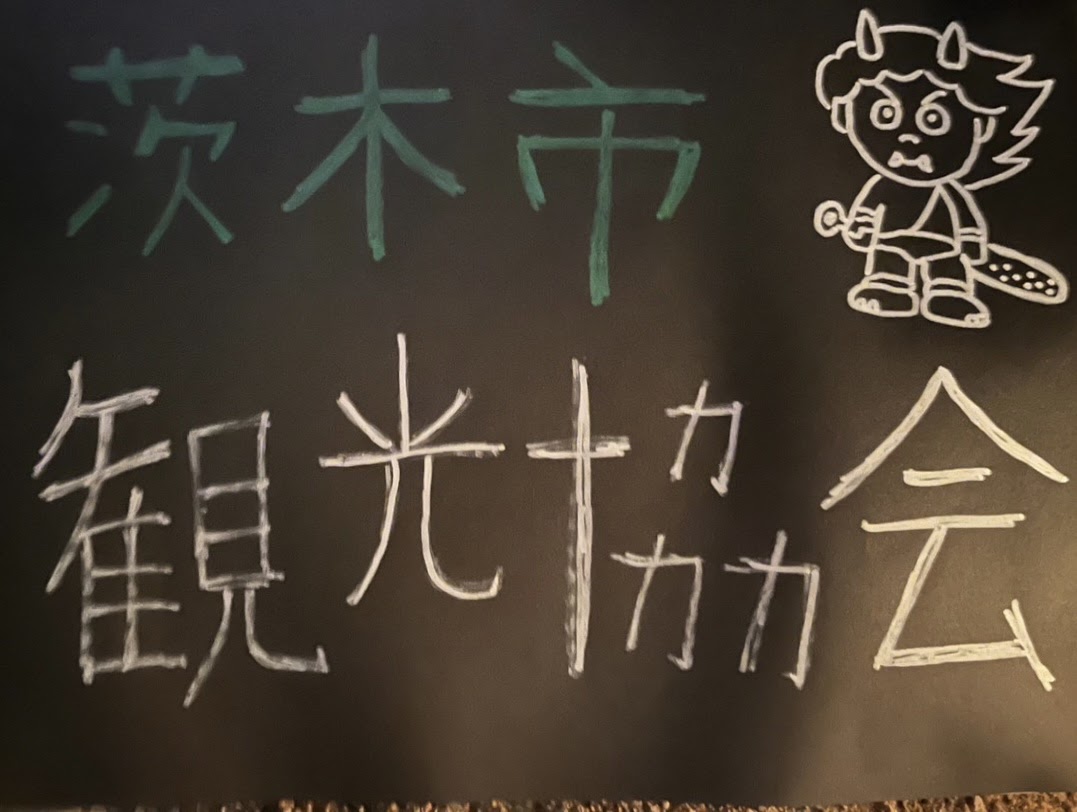 茨木市
観光協会